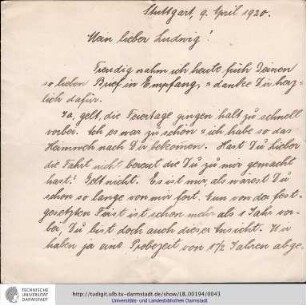 Stuttgart, 9. April 1920.
Mein lieber Ludwig!
Freudig nahm ich heute früh Deinen
so lieben Brief in Empfang, & danke Dir herz-
lich dafür.
Ja, gelt, die Feiertage gingen halt zu schnell
vorbei. Ach es war zu schön & ich habe so das
Heimweh nach Dir bekommen. Hast Du lieber
die Fahrt nicht bereut die Du zu mir gemacht
hast? Gelt nicht. Es ist mir, als wärest Du
schon so lange von mir fort. Nun von der fest-
gesetzten Zeit ist schon mehr als 1 Jahr vor-
bei, Du bist doch auch dieser Ansicht. Wir
haben ja eine Probezeit von 1½ Jahren abge-
TECHNISCHE
UNIVERSITÄT
DARMSTADT
http://tudigit.ulb.tu-darmstadt.de/show/LB_00194/0043
Universitäts- und Landesbibliothek Darmstadt